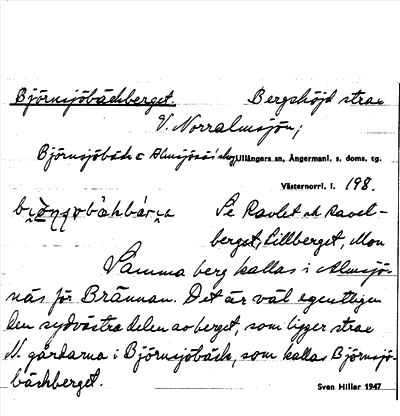 Björnsjöbäckberget. Bergshöjd strax
V. Norralmsjön;
Björnsjöbäck o Almsjönäs i Ullångers sn, Ångermanl. s. doms. tg.
Västernorrl. l. 198.
Se Ravlet och Ravel-
berget, Lillberget, Mon
Samma berg kallas i Almsjö-
näs för Brännan. Det är väl egentligen
den sydvästra delen av berget, som ligger strax
N. gårdarna i Björnsjöbäck, som kallas Björnsjö-
bäckberget.
Sven Hiller 1947